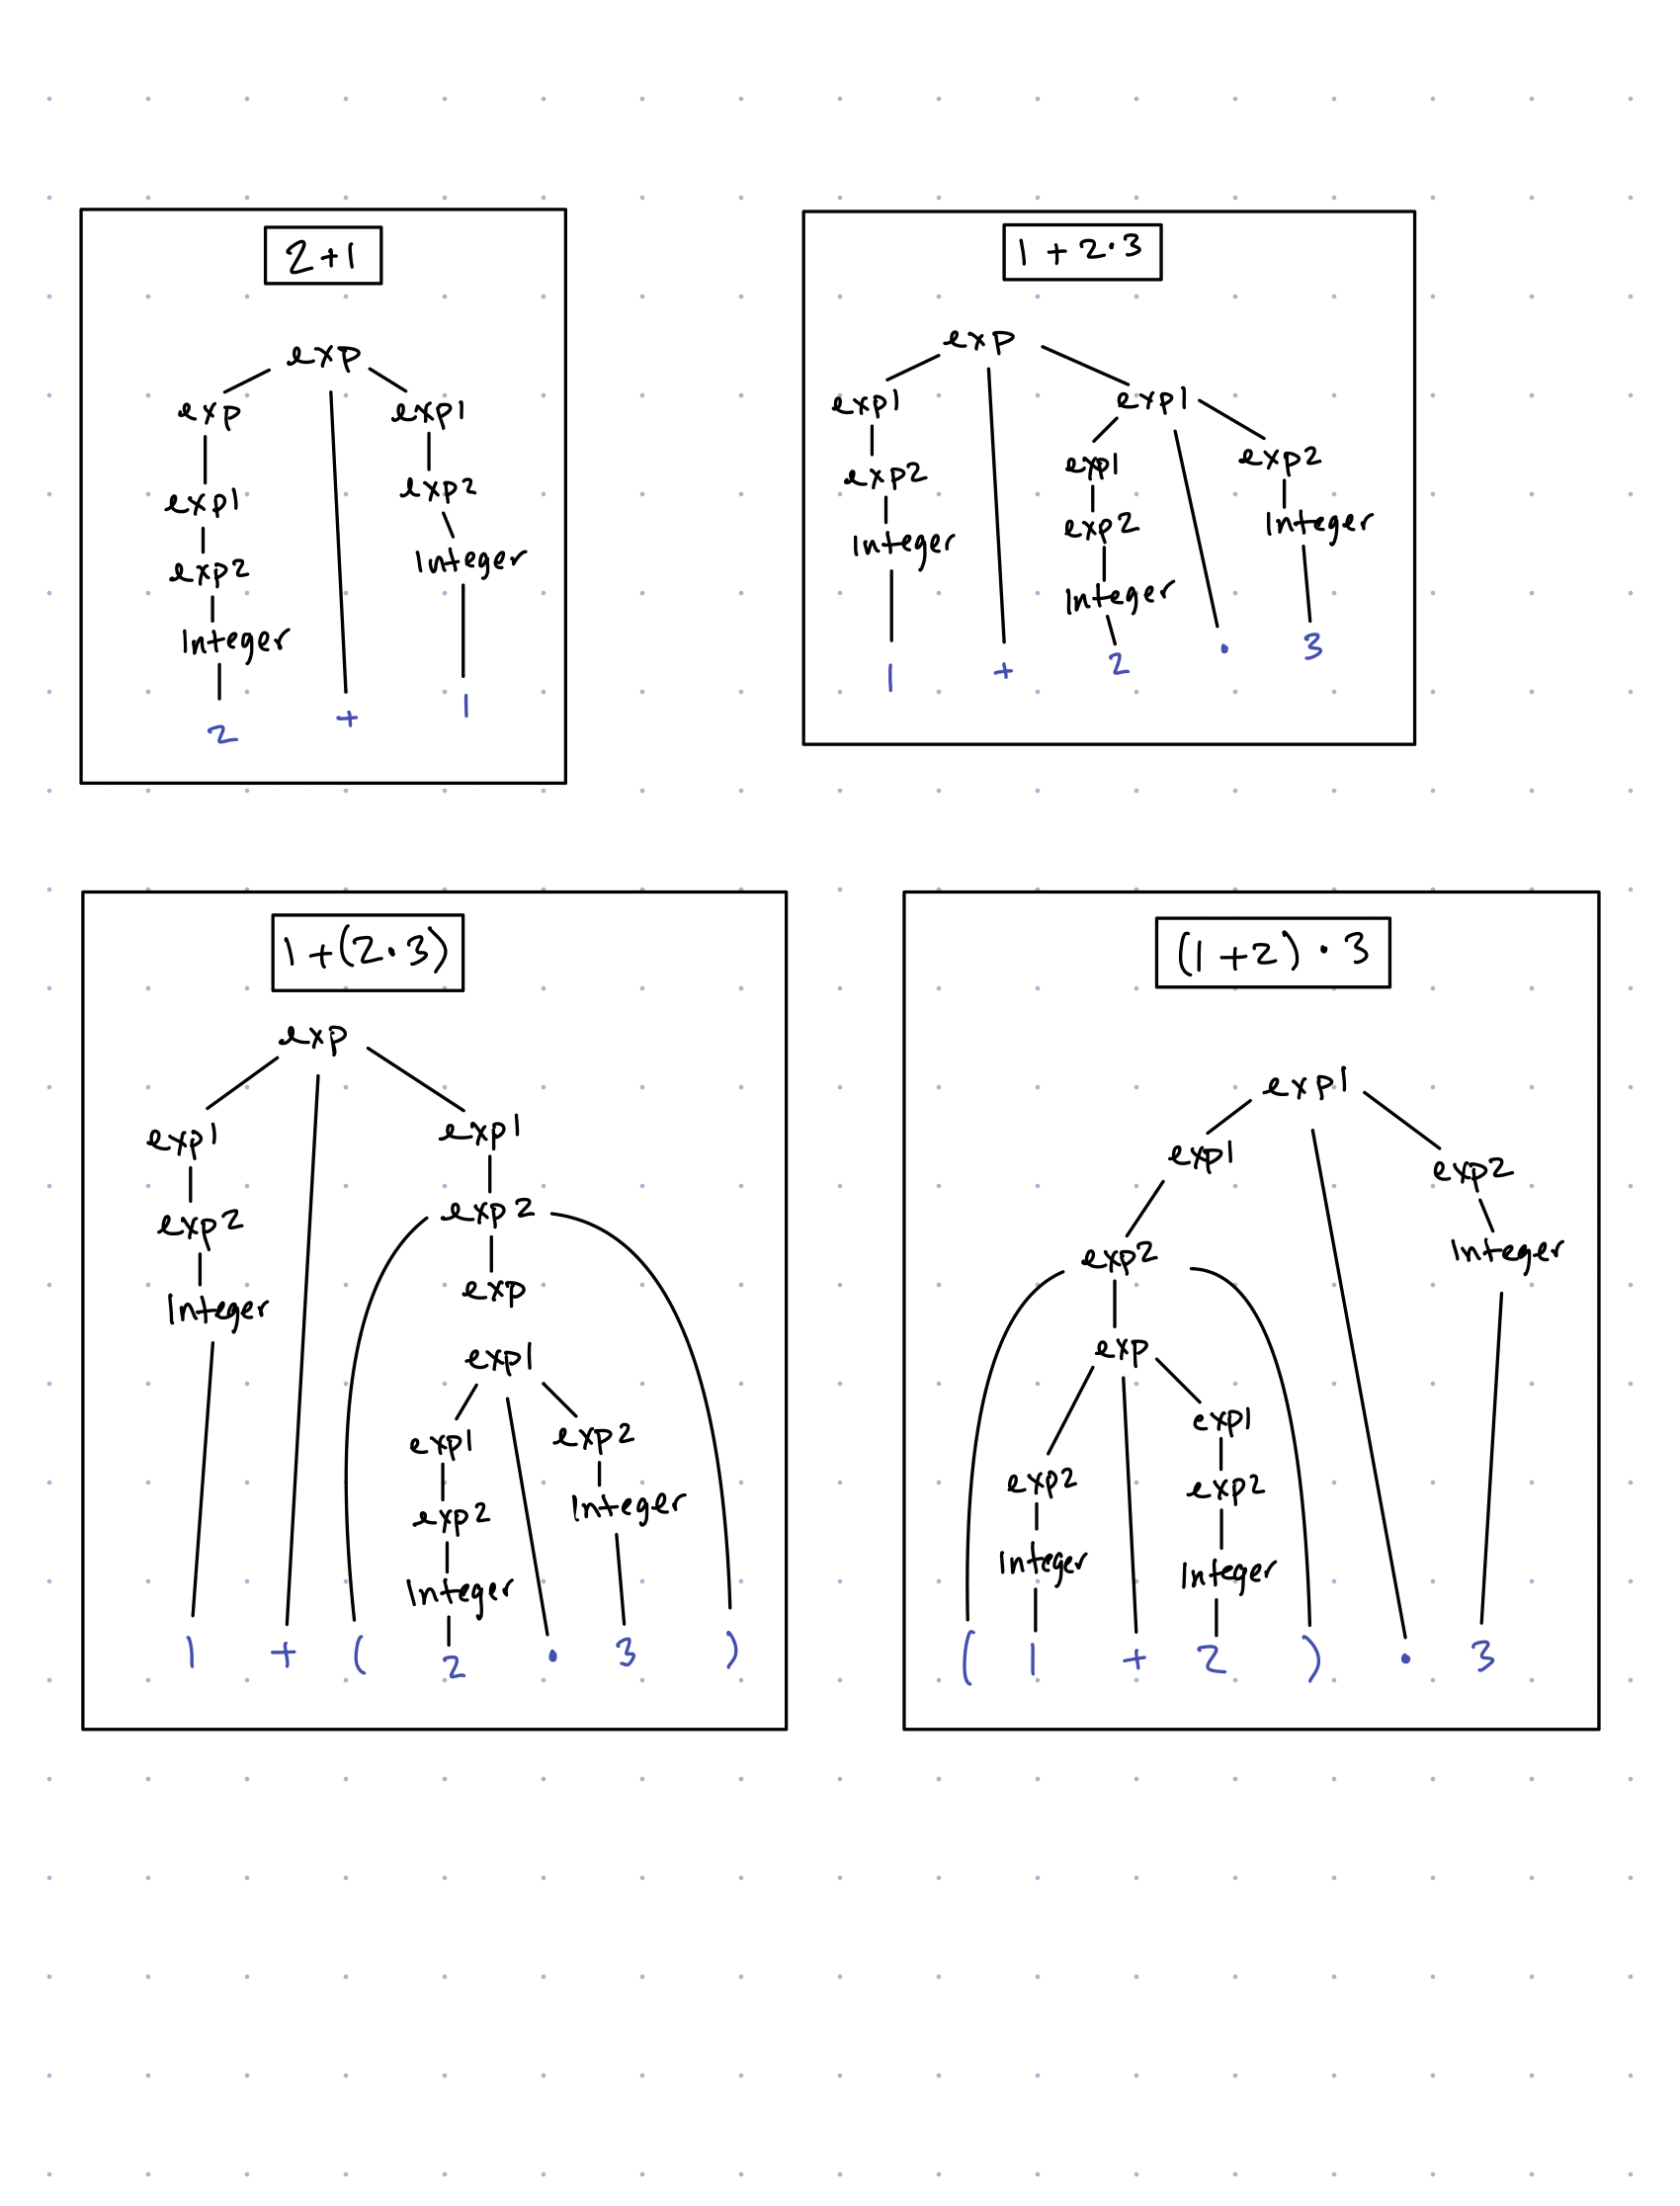 2+1
exp
exp exp1
exp1 exp2
exp2 Integer
Integer
2 + 1
1 + 2 · 3
exp
exp1 exp1
exp2 exp1 exp2
Integer exp2 Integer
Integer
1 + 2 · 3
1 + (2 · 3)
exp
exp1 exp1
exp2 exp2
Integer exp
exp1
exp1 exp2
exp2 Integer
Integer
1 + ( 2 · 3 )
(1 + 2) · 3
exp1
exp1 exp2
exp2 Integer
exp
exp1
exp2 exp2
Integer Integer
( 1 + 2 ) · 3